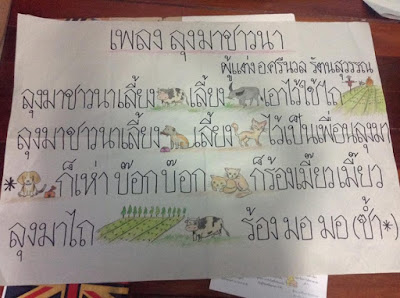 เพลง ลุงมาชาวนา
ผู้แต่ง อ.ศรีนวล รัตนสุวรรณ
ลุงมาชาวนาเลี้ยง เลี้ยง เอาไว้ใช้ไถ
ลุงมาชาวนาเลี้ยง เลี้ยง ไว้เป็นเพื่อนลุงมา
* ก็เห่า บ๊อก บ๊อก ก็ร้องเมี๊ยว เมี๊ยว
ลุงมาไถ ร้อง มอ มอ (ซ้ำ*)